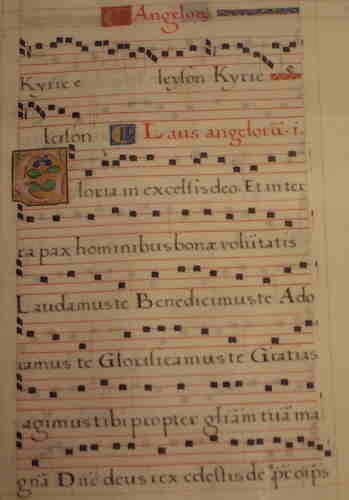 Angelorũ
Kyrie e leyson Kyrie
leison Laus angelorũ. i.
Gloria in excelsis deo. Et in ter
ra pax hominibus bonæ volũtatis
Laudamus te Benedicimus te Ado
ramus te Glorificamus te Gratias
agimus tibi propter gliãm tuã ma
gnã Dñe deus rex celestis de pr̃ oĩps